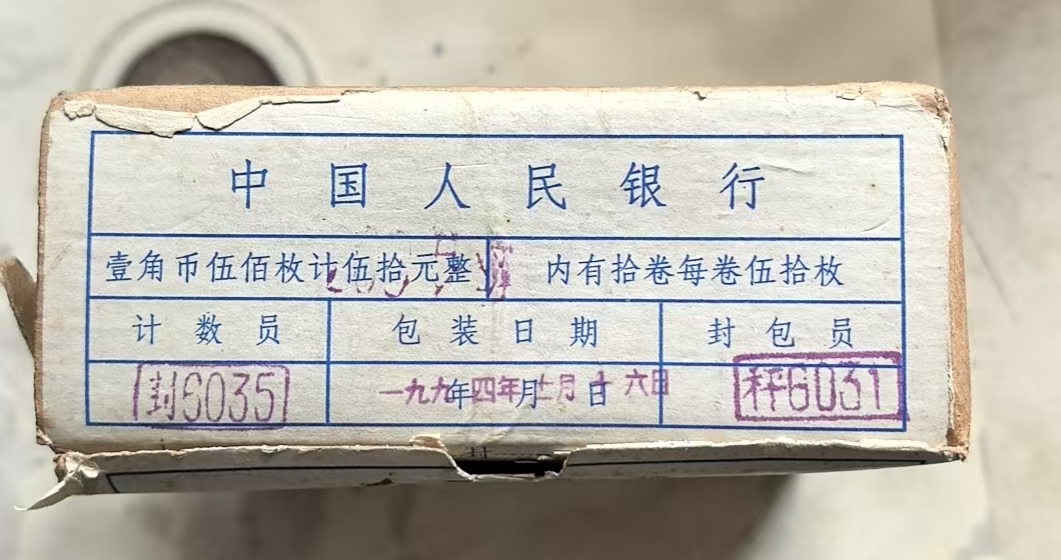 中国人民银行
壹角币伍佰枚计伍拾元整 内有拾卷每卷伍拾枚
计数员 包装日期 封包员
封6035 一九九年四年月七月日十六日 秤6031
封